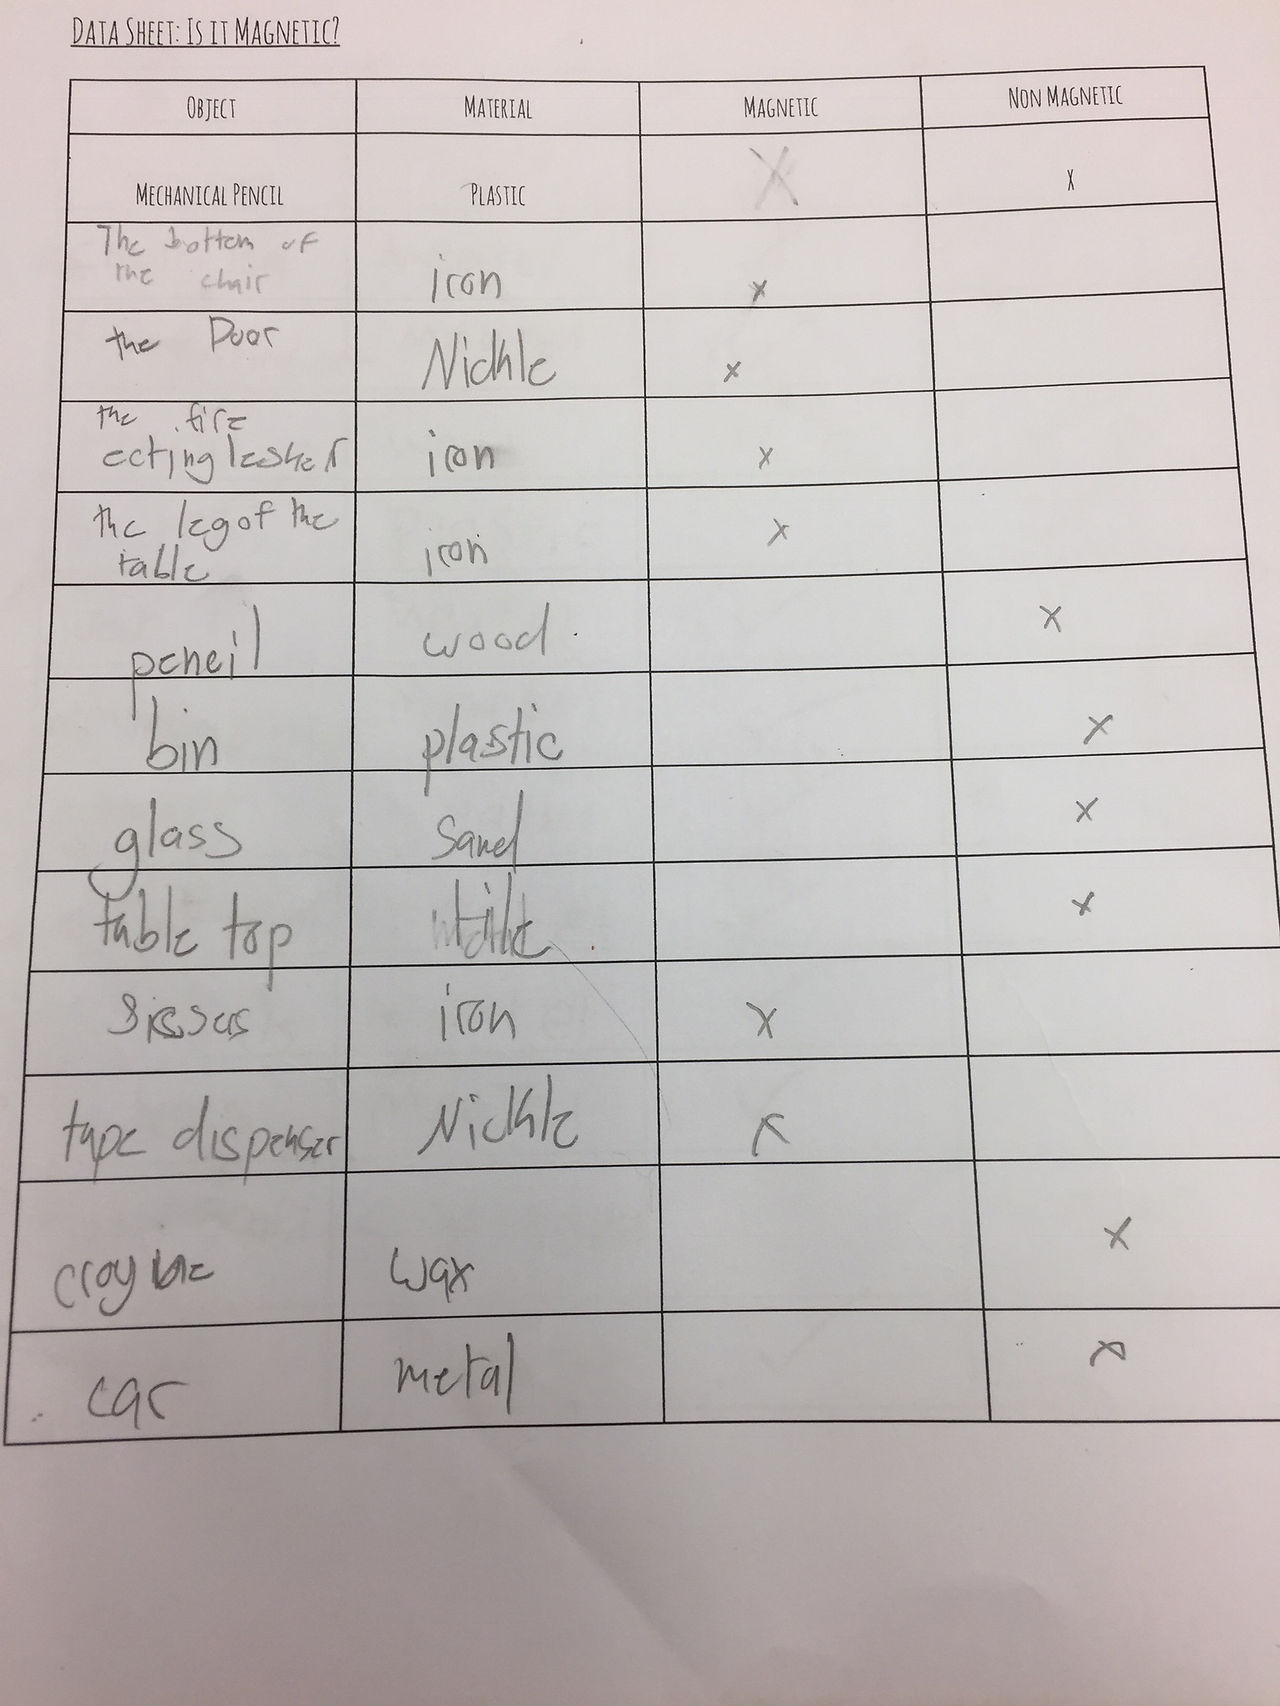 DATA SHEET: IS IT MAGNETIC?
OBJECT MATERIAL MAGNETIC NON MAGNETIC
MECHANICAL PENCIL PLASTIC X X
The bottom of
the chair iron x
the Door Nickle x
the fire
ectinglesher iron x
the leg of the
table iron x
pencil wood x
bin plastic x
glass sand x
table top x
Sissus iron x
tape dispenser Nickle x
wax x
car metal x